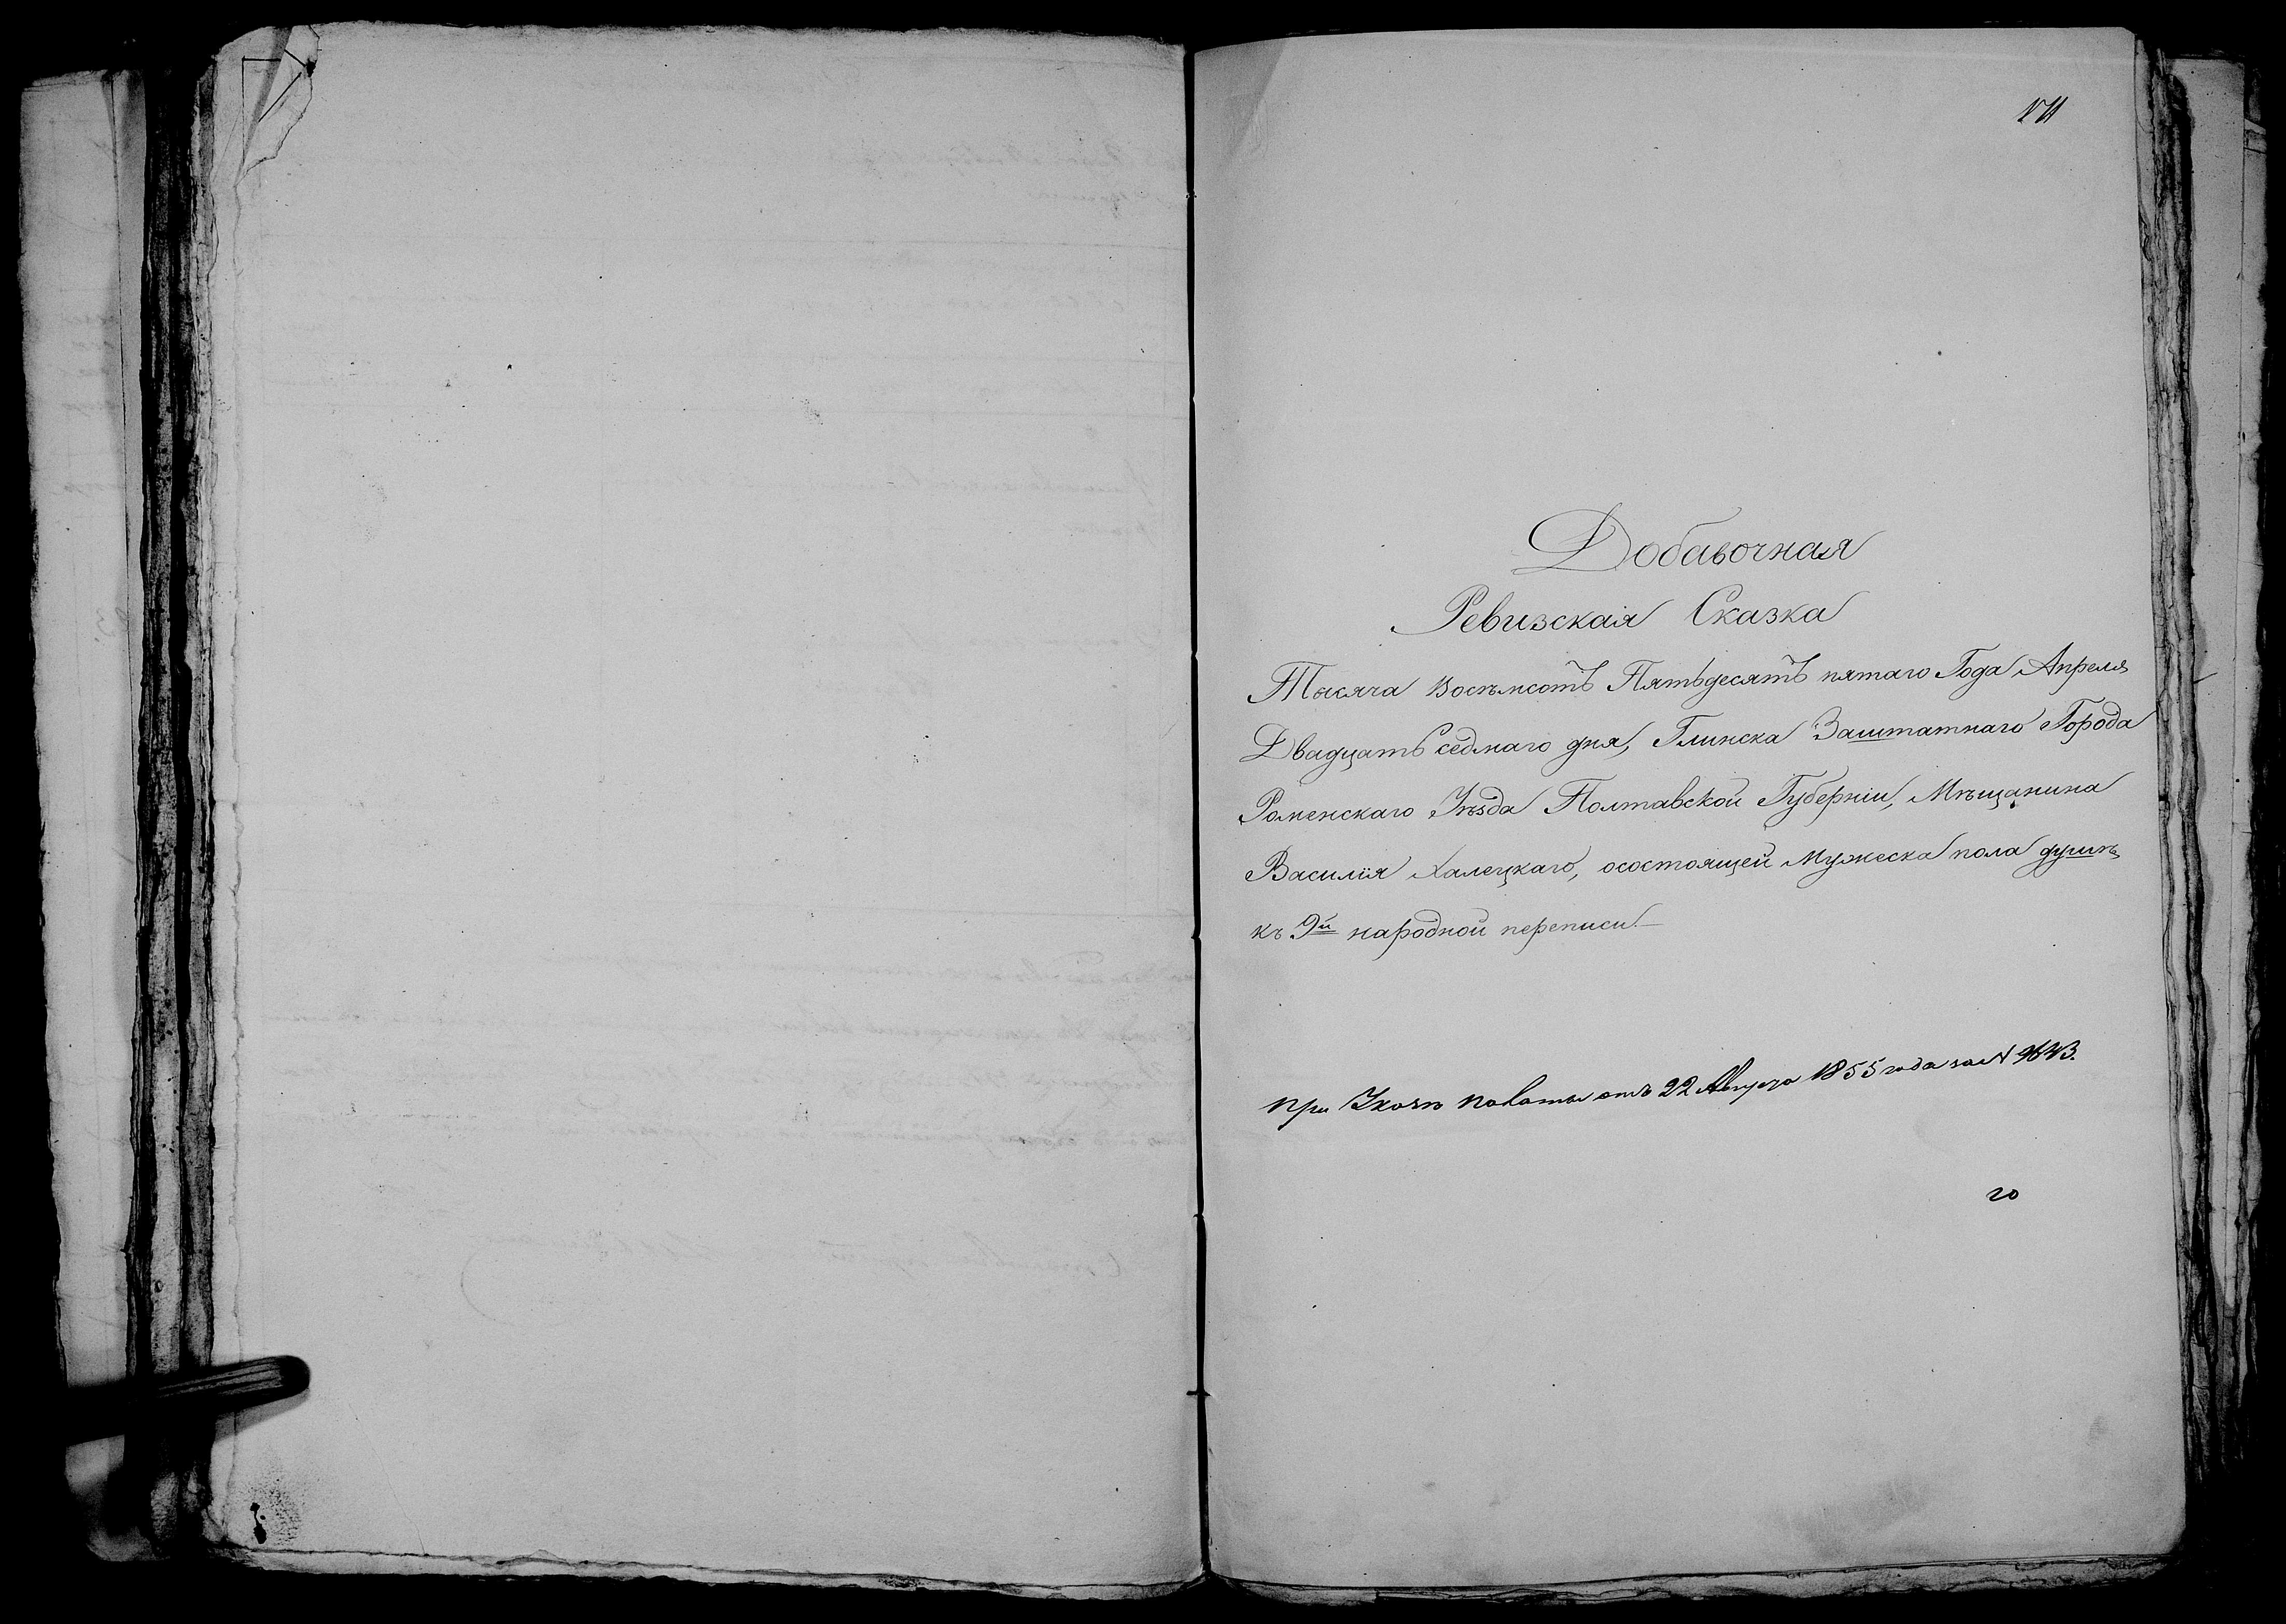 Добавочная
Ревизская Сказка
Тысяча Восемсотъ Пятьдесятъ пятаго Года Апреля
Двадцать седмаго дня, Глинска Заштатнаго Города
Роменскаго Уѣзда Полтавской Губерніи, Мѣщанина
Василія Халецкаго, осостоящей Мужеска пола душѣ
къ 9й народной переписи.—
при Указѣ палаты отъ 22 Августа 1855 года за №
го